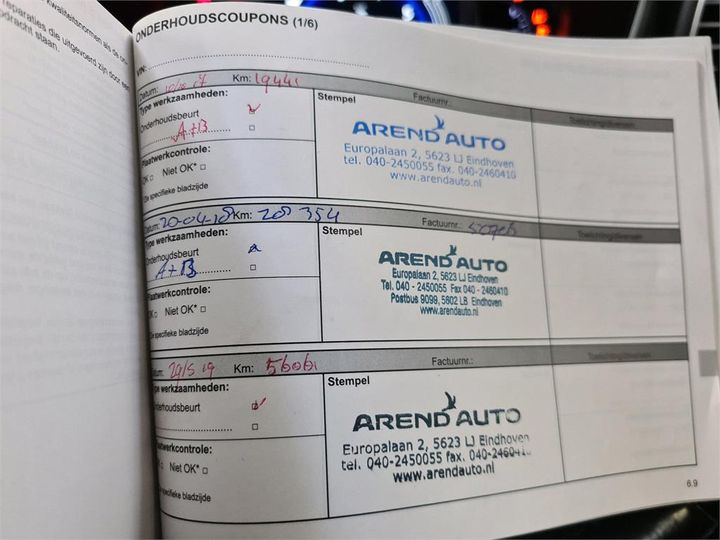 kwaliteitsnormen als de on
reparaties die uitgevoerd zijn door een
pdracht staan.
ONDERHOUDSCOUPONS (1/6)
VIN:
Datum: Km: 19441
Type werkzaamheden:
Onderhoudsbeurt
A+B
Plaatwerkcontrole:
OK Niet OK*
*Zie specifieke bladzijde
Stempel
Factuurnr.:
Toelichting/diversen
AREND AUTO
Europalaan 2, 5623 LJ Eindhoven
tel. 040-2450055 fax. 040-2460410
www.arendauto.nl
Datum: 20-04-18 Km: 28 354
Type werkzaamheden:
Onderhoudsbeurt
A+B
Plaatwerkcontrole:
OK Niet OK*
*Zie specifieke bladzijde
Stempel
Factuurnr.:
Toelichting/diversen
AREND AUTO
Europalaan 2, 5623 LJ Eindhoven
Tel. 040 - 2450055 Fax 040 - 2460410
Postbus 9099, 5602 LB Eindhoven
www.arendauto.nl
tum: 29/5 19 Km: 56061
pe werkzaamheden:
nderhoudsbeurt
aatwerkcontrole:
Niet OK*
specifieke bladzijde
Stempel
Factuurnr.:
Toelichting/diversen
AREND AUTO
Europalaan 2, 5623 LJ Eindhoven
tel. 040-2450055 fax. 040-2460410
www.arendauto.nl
6.9